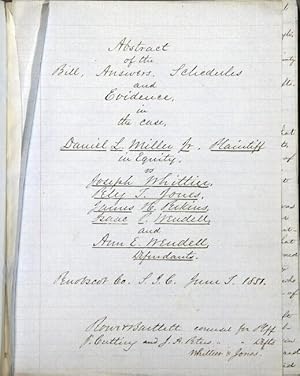 Abstract
of the
Bill, Answers, Schedules
and
Evidence,
in
the case,
Daniel L. Miller Jr. Plaintiff
in Equity.
vs
Joseph Whittier,
T. Jones,
James H. Perkins,
Isaac P. Wendell,
and
Ann E. Wendell,
Defendants.
Penobscot Co. S.J.C. June T. 1851.
Rowe & Bartlett counsel for Plff
J. Cutting and J. A. Peters " " Defts
Whittier & Jones.